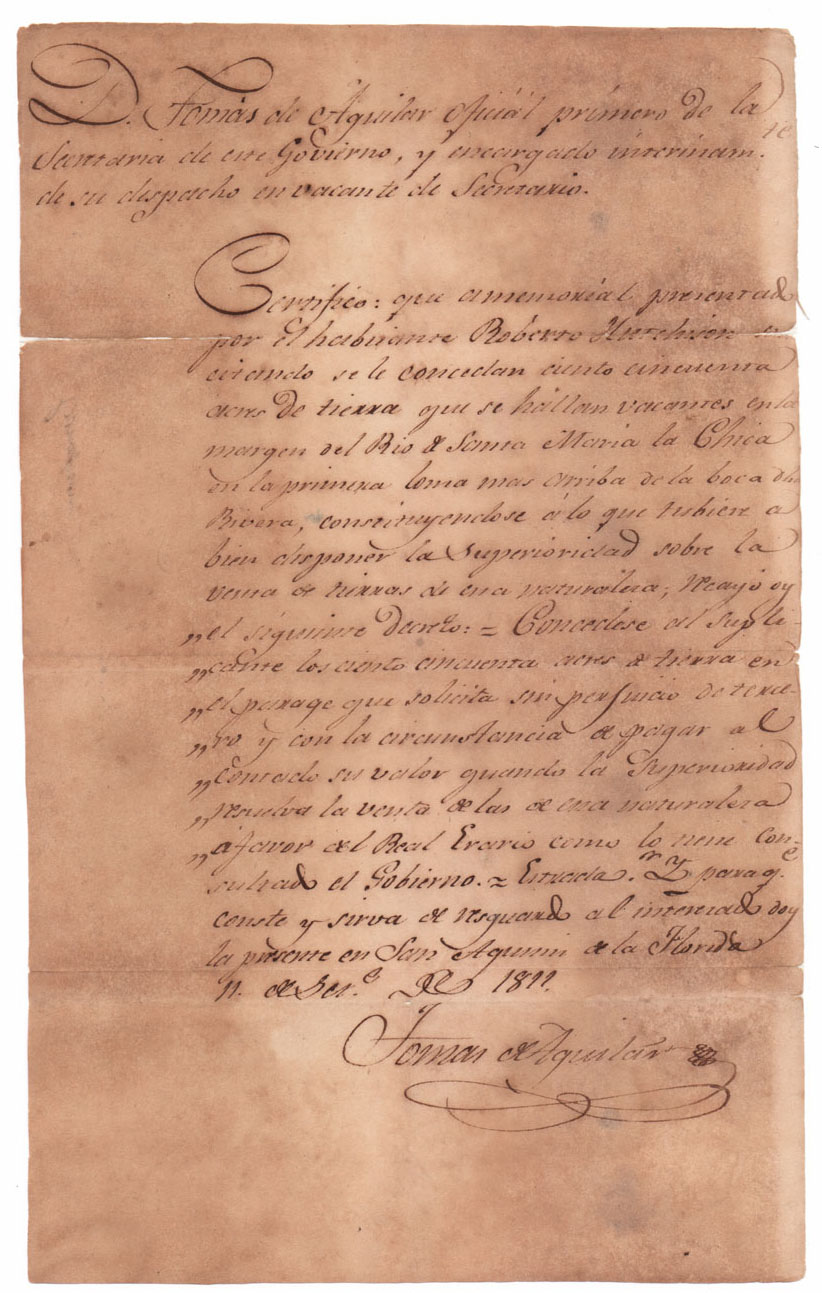 D. Tomás de Aguilar oficiál primero de la
Secretaria de este Govierno, y encargado interinam.te
de su despacho en vacante de Secretario.
Certifico: que a memoriál presentado
por El habitante Roberto Hutchison so
citando se le concedan ciento cincuenta
acres de tierra que se hállan vacantes en la
margen del Rio de Santa Maria la Chica
en la primera loma mas arriba de la boca de la
Rivera, constituyendose á lo que tubiere a
bien disponer la Superioridad sobre la
venta de tierras de esa naturaleza; recayó oy
„ el síguiente decreto: = Concedese al supli-
„ cante los ciento cincuenta acres de tierra en
„ el parage que solicita sin perjuicio de terce-
„ ro y con la circunstancia de pagar al
„ contado su valor quando la Superioridad
„ resuelva la venta de las de esa naturaleza
„ á favor del Real Erario como lo tiene con-
sultado el Gobierno. = Estrada. „ Y para q.e
conste y sirva de resguardo al interesado doy
la presente en San Agustin de la Florida
11. de Set.e De 1811.
Tomas de Aguilar